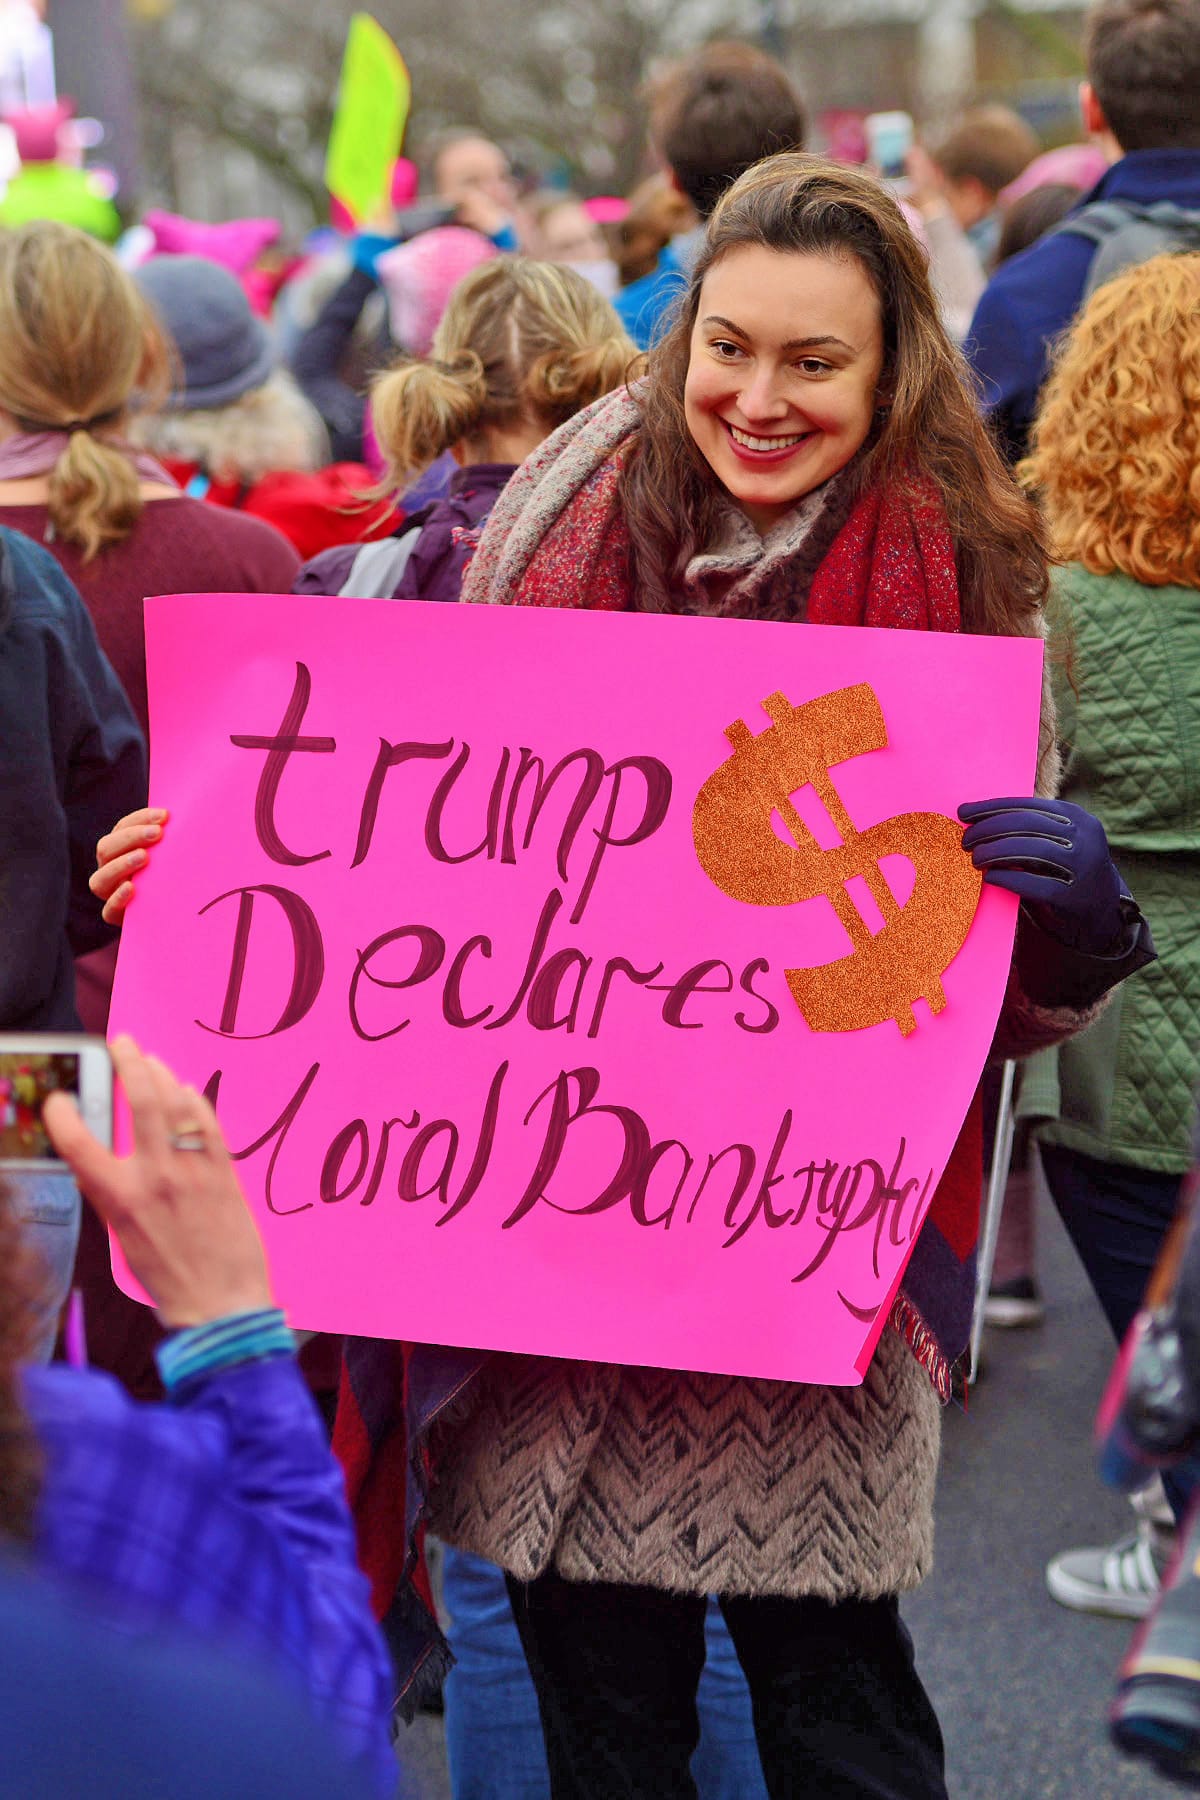 trump $
Declares
Moral Bankruptcy